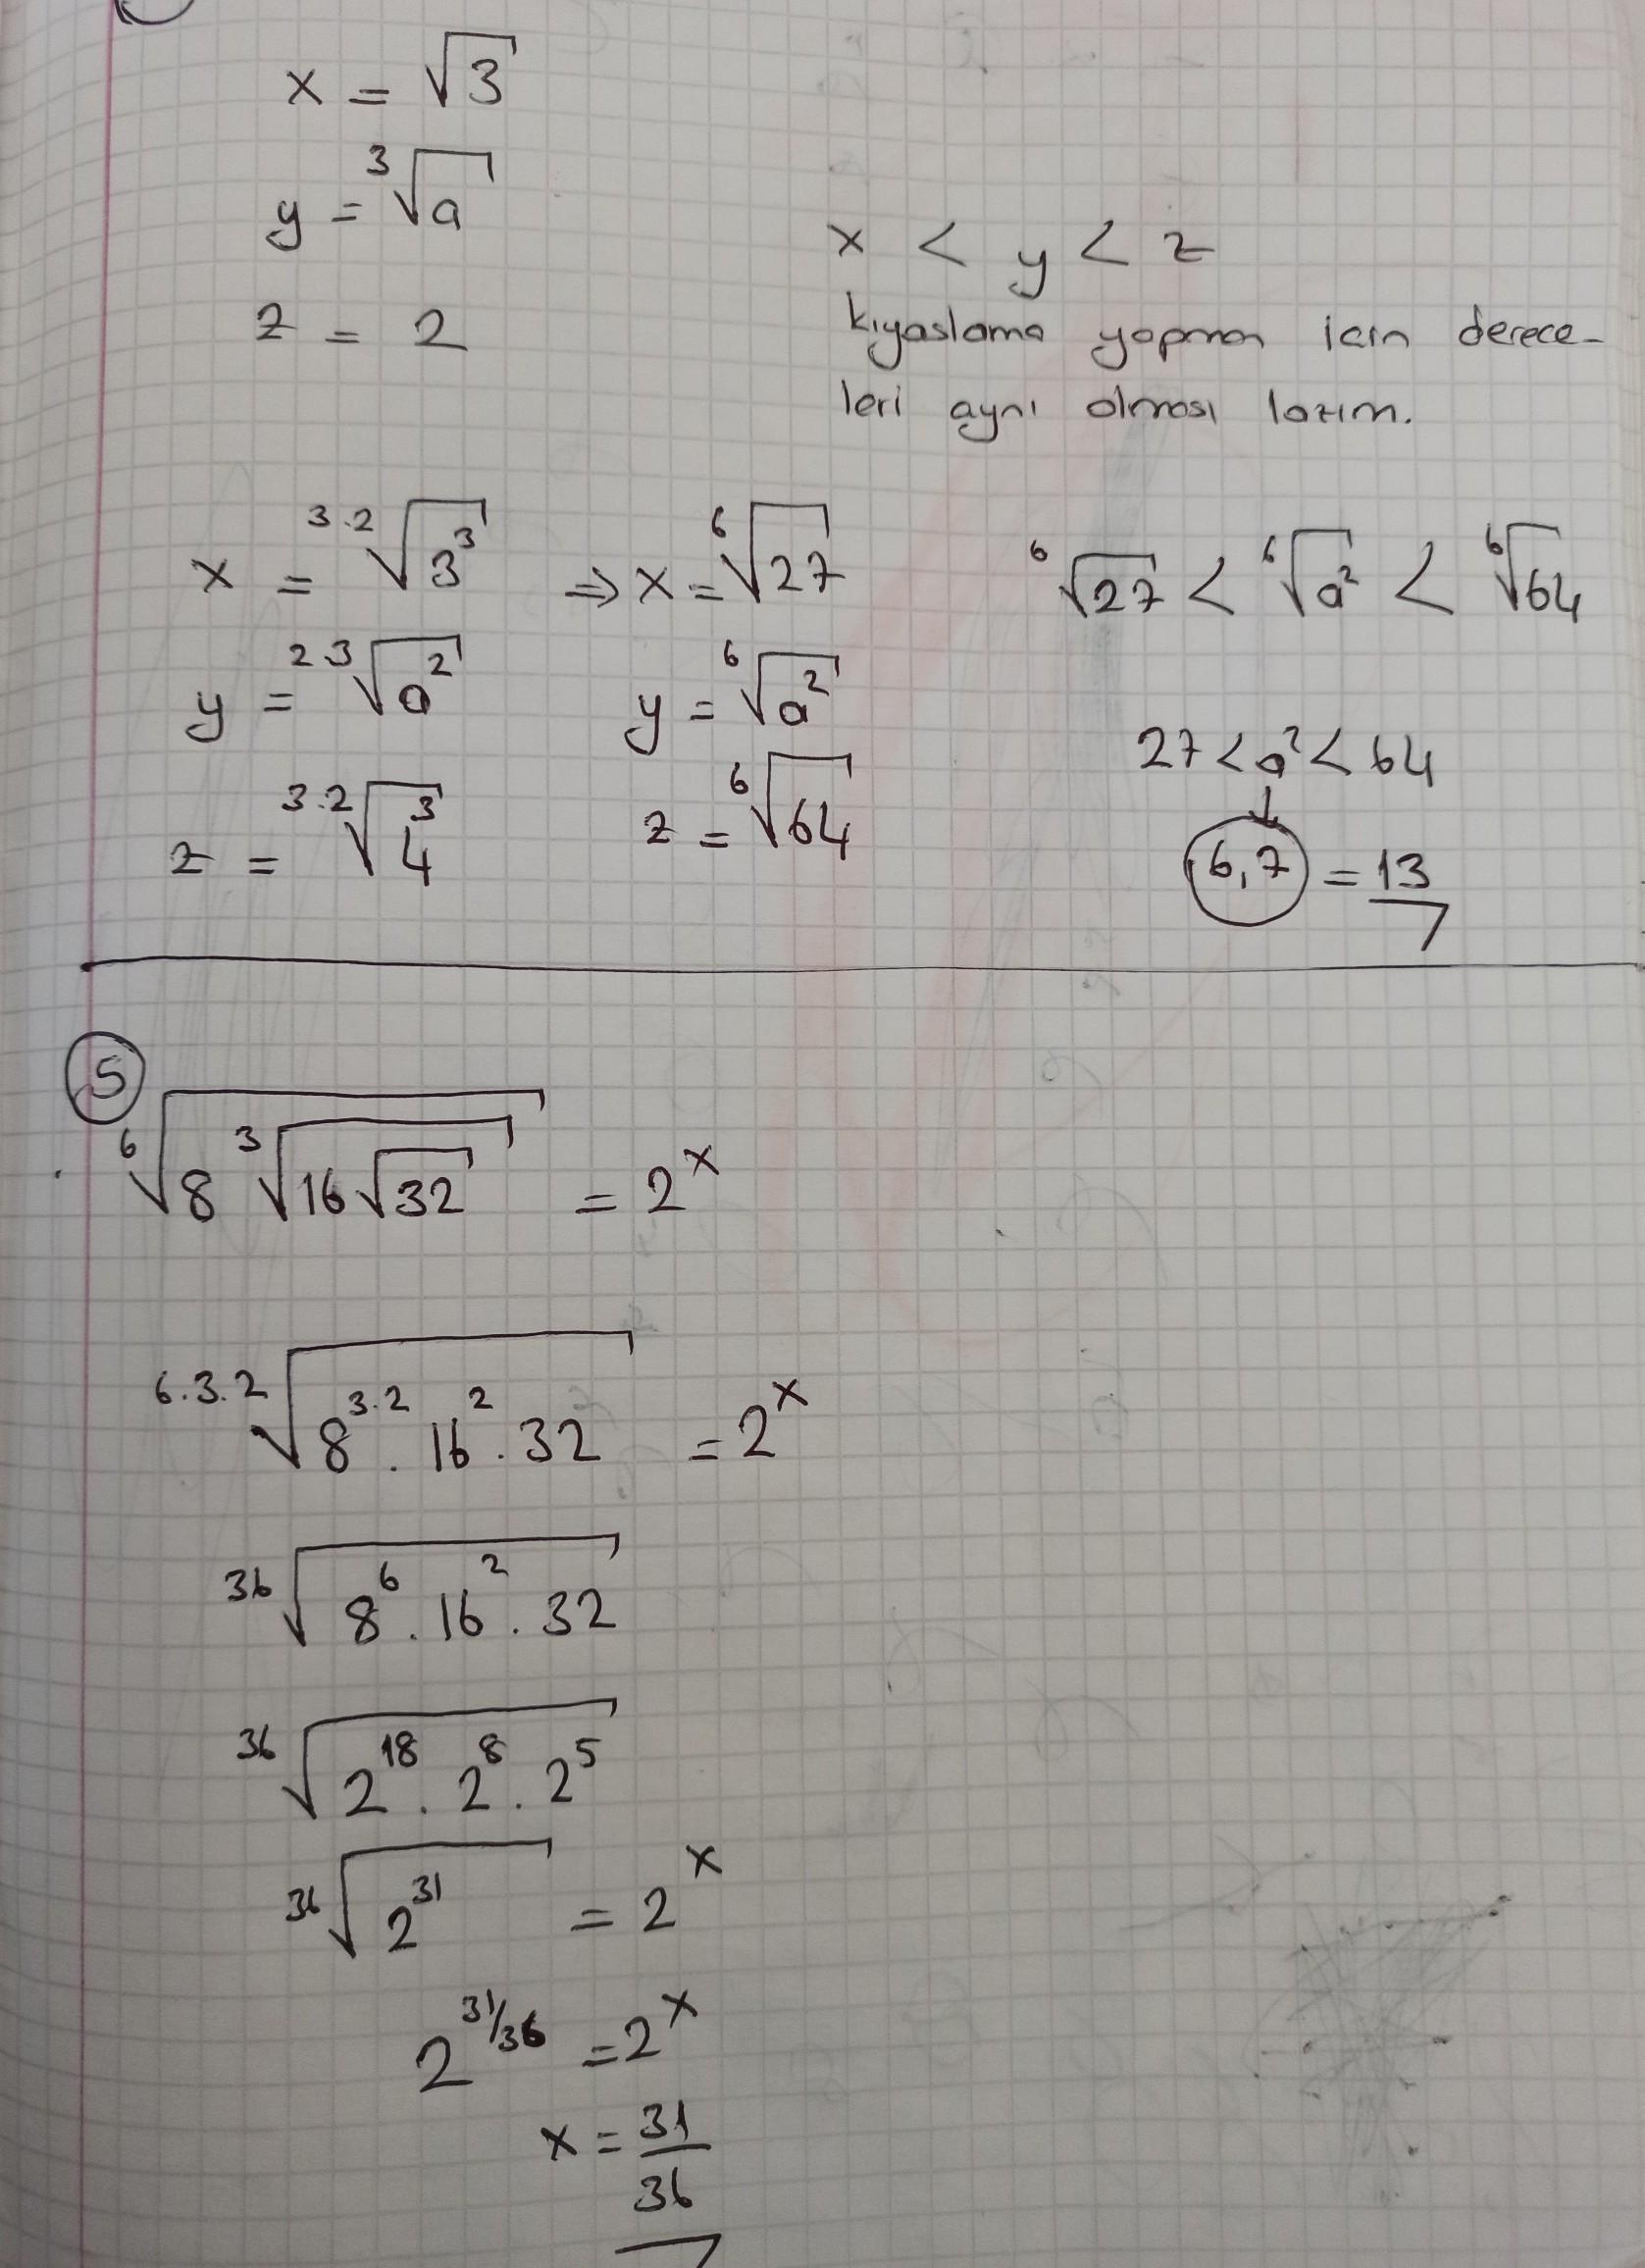 x = √3
y = ³√a
z = 2
x < y < z
kıyaslama yapman için derece-
leri aynı olması lazım.
x = ³·²√3³ ⇒ x = ⁶√27
y = ²·³√a² y = ⁶√a²
z = ³·²√4³ z = ⁶√64
⁶√27 < ⁶√a² < ⁶√64
27 < a² < 64
↓
6,7 = 13
S
⁶√(8 ³√(16 √32)) = 2ˣ
⁶·³·²√(8³·² . 16² . 32) = 2ˣ
³⁶√(8⁶ . 16² . 32)
³⁶√(2¹⁸ . 2⁸ . 2⁵)
³⁶√2³¹ = 2ˣ
2^31/36 = 2ˣ
x = 31/36